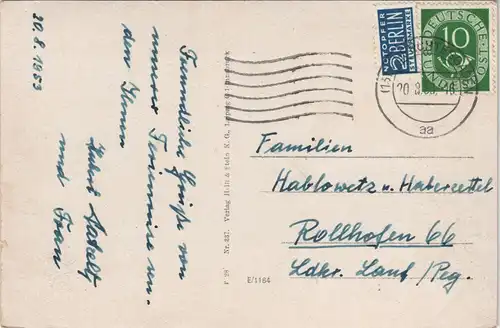 20.8.1953
Freundliche Grüße von
unserer Ferienreise
den Ihnen
und Frau
F 98 Nr. 237. Verlag Holt & Stein K. G.,
E/1164
NOTOPFER
2 BERLIN
STEUERMARKE
DEUTSCHE POST
10
aa
Familien
Hablowetz u. Haberzettel
Rollhofen 66
Ldkr. Lauf/Peg.